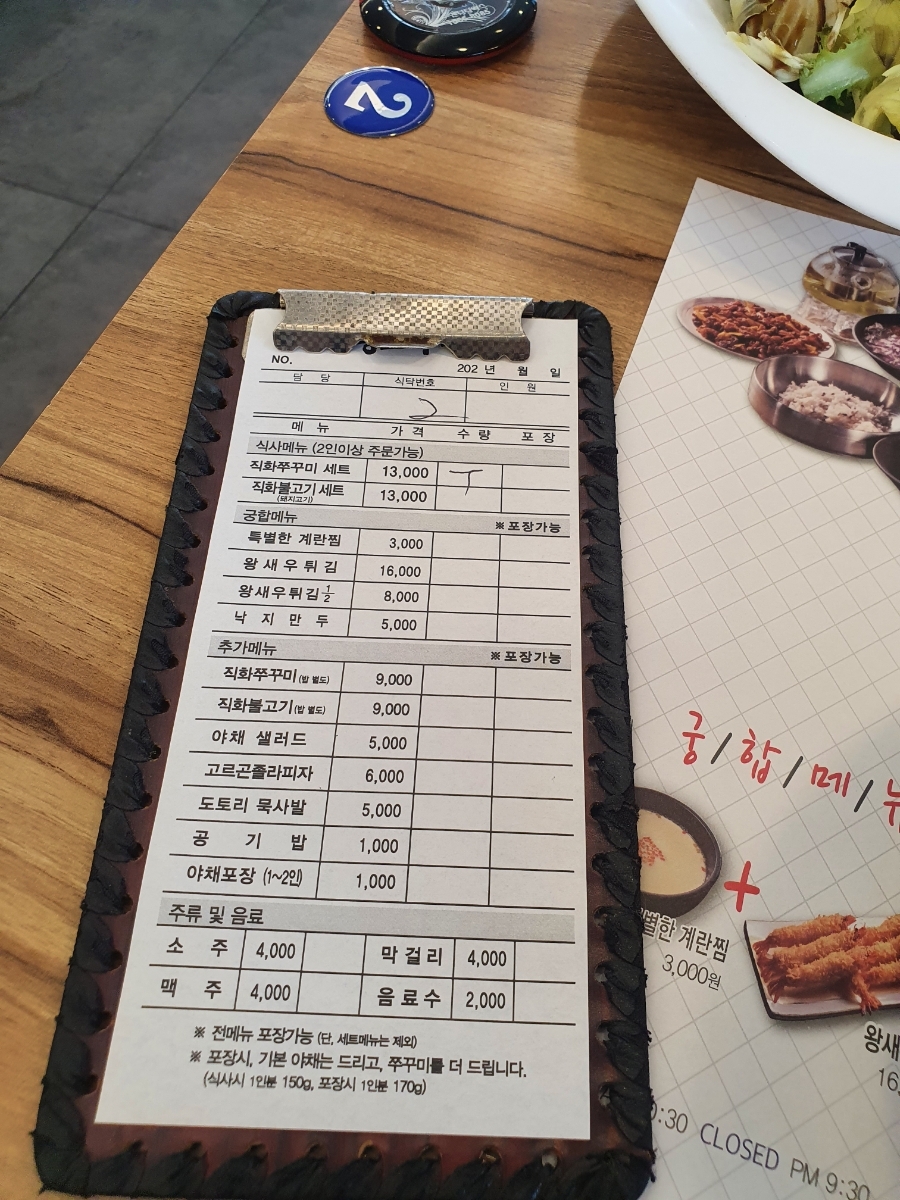 2
NO. 202 년 월 일
담 당 식탁번호 인 원
2
메 뉴 가 격 수 량 포 장
식사메뉴 (2인이상 주문가능)
직화쭈꾸미 세트 13,000 T
직화불고기 세트 13,000
(돼지고기)
궁합메뉴 ※ 포장가능
특별한 계란찜 3,000
왕 새 우 튀 김 16,000
왕새우튀김 1/2 8,000
낙 지 만 두 5,000
추가메뉴 ※ 포장가능
직화쭈꾸미 (밥 별도) 9,000
직화불고기 (밥 별도) 9,000
야채 샐러드 5,000
고르곤졸라피자 6,000
도토리 묵사발 5,000
공 기 밥 1,000
야채포장 (1~2인) 1,000
주류 및 음료
소 주 4,000 막 걸 리 4,000
맥 주 4,000 음 료 수 2,000
※ 전메뉴 포장가능 (단, 세트메뉴는 제외)
※ 포장시, 기본 야채는 드리고, 쭈꾸미를 더 드립니다.
(식사시 1인분 150g, 포장시 1인분 170g)
궁/합/메/뉴
+
별한 계란찜
3,000원
왕새
16,
:30 CLOSED PM 9:30